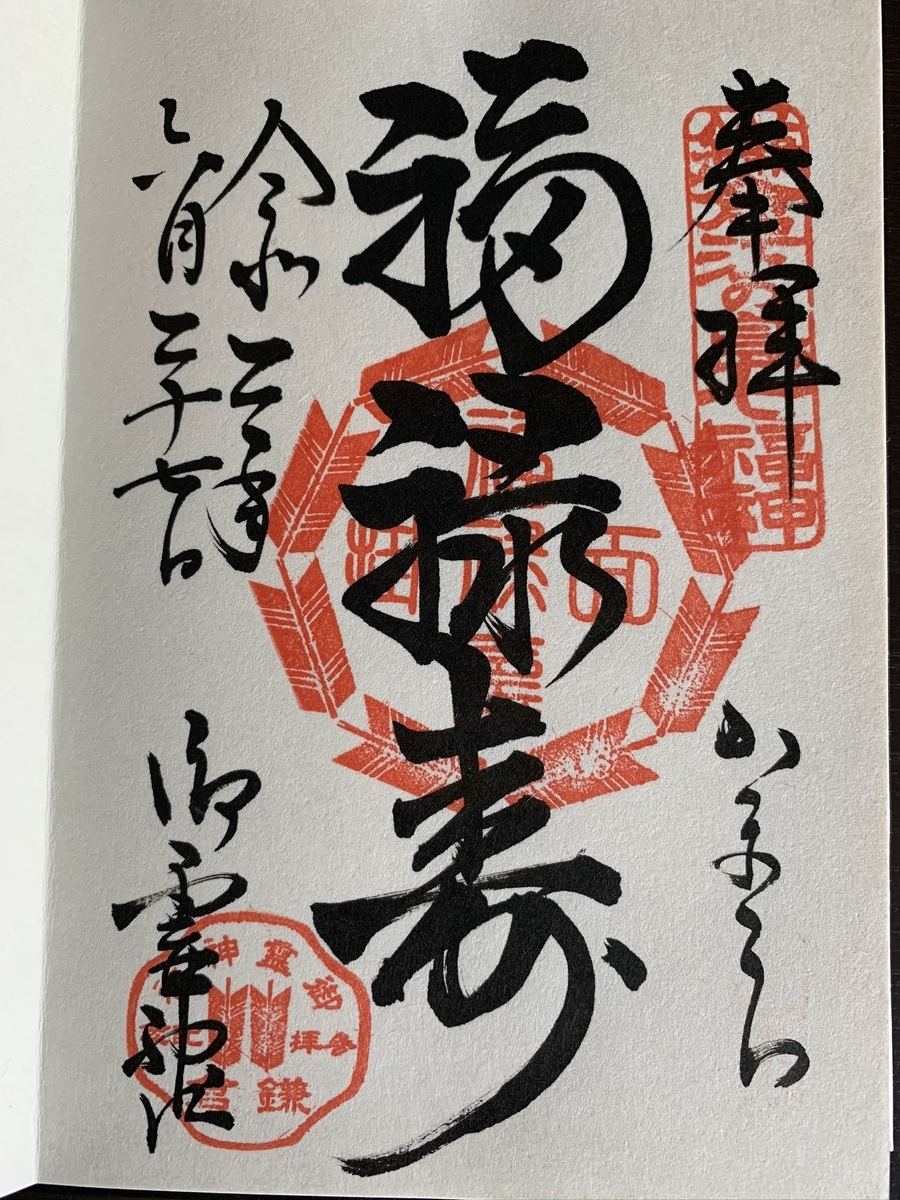 奉拝
かまくら
鎌倉江の島七福神
福禄寿
令和二年
六月二十七日
御霊神社
御靈神社
参拝
鎌倉